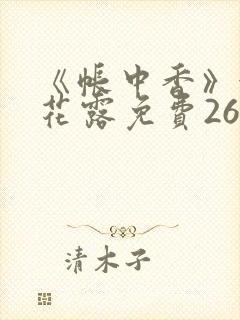 《帐中香》
花露免費26
清木子